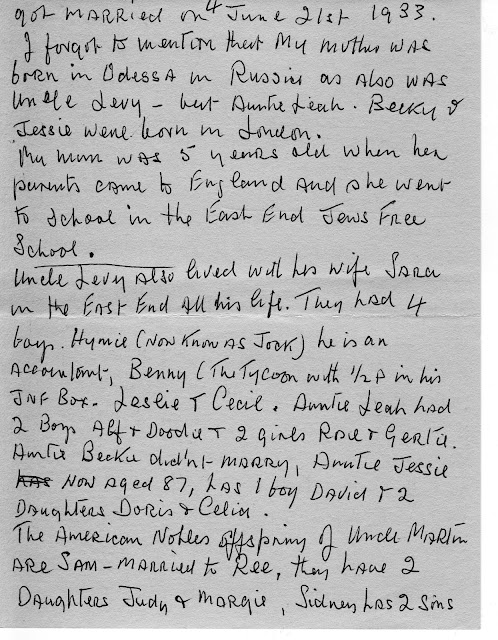 got MARRIED on 4 June 21st 1933.
I forgot to mention that My mother was
born in Odessa in Russia as Also was
Uncle Levy - but Auntie Leah. Becky &
Jessie were born in London.
My mum was 5 years old when her
parents came to England and she went
to School in the East End Jews Free
School.
Uncle Levy also lived with his wife Sara
in the East End all his life. They had 4
boys. Hymie (Now Known as Jock) he is an
Accountant, Benny (The Tycoon with 1/2 P in his
JNF Box. Leslie & Cecil. Auntie Leah had
2 Boys Alf + Doodie & 2 girls Rose & Gertie.
Auntie Beckie did'nt marry, Auntie Jessie
has Now Aged 87, has 1 boy David & 2
Daughters Doris & Celia.
The American Nobles offspring of Uncle Martin
are Sam - Married to Ree, they have 2
Daughters Judy & Margie, Sidney has 2 sons